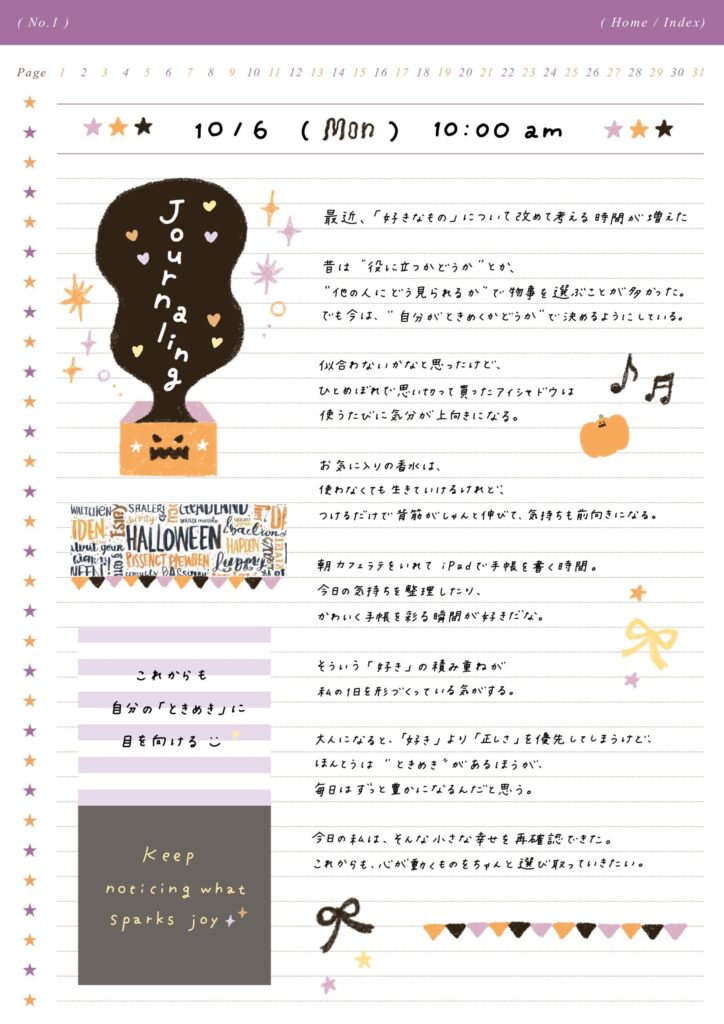 ( No.1 )
( Home / Index)
Page 1 2 3 4 5 6 7 8 9 10 11 12 13 14 15 16 17 18 19 20 21 22 23 24 25 26 27 28 29 30 31
10/6 (Mon) 10:00 am
Journaling
最近、「好きなもの」について改めて考える時間が増えた
昔は“役に立つかどうか”とか、
“他の人にどう見られるか”で物事を選ぶことが多かった。
でも今は、“自分がときめくかどうか”で決めるようにしている。
似合わないかなと思ったけど、
ひとめぼれで思い切って買ったアイシャドウは
使うたびに気分が上向きになる。
お気に入りの香水は、
使わなくても生きていけるけれど、
つけるだけで背筋がしゃんと伸びて、気持ちも前向きになる。
朝カフェラテをいれて iPadで手帳を書く時間。
今日の気持ちを整理したり、
かわいく手帳を彩る瞬間が好きだな。
そういう「好き」の積み重ねが
私の1日を形づくっている気がする。
大人になると、「好き」より「正しさ」を優先してしまうけど、
ほんとうは“ときめき”があるほうが、
毎日はずっと豊かになるんだと思う。
今日の私は、そんな小さな幸せを再確認できた。
これからも、心が動くものをちゃんと選び取っていきたい。
HALLOWEEN
これからも
自分の「ときめき」に
目を向ける
Keep
noticing what
sparks joy